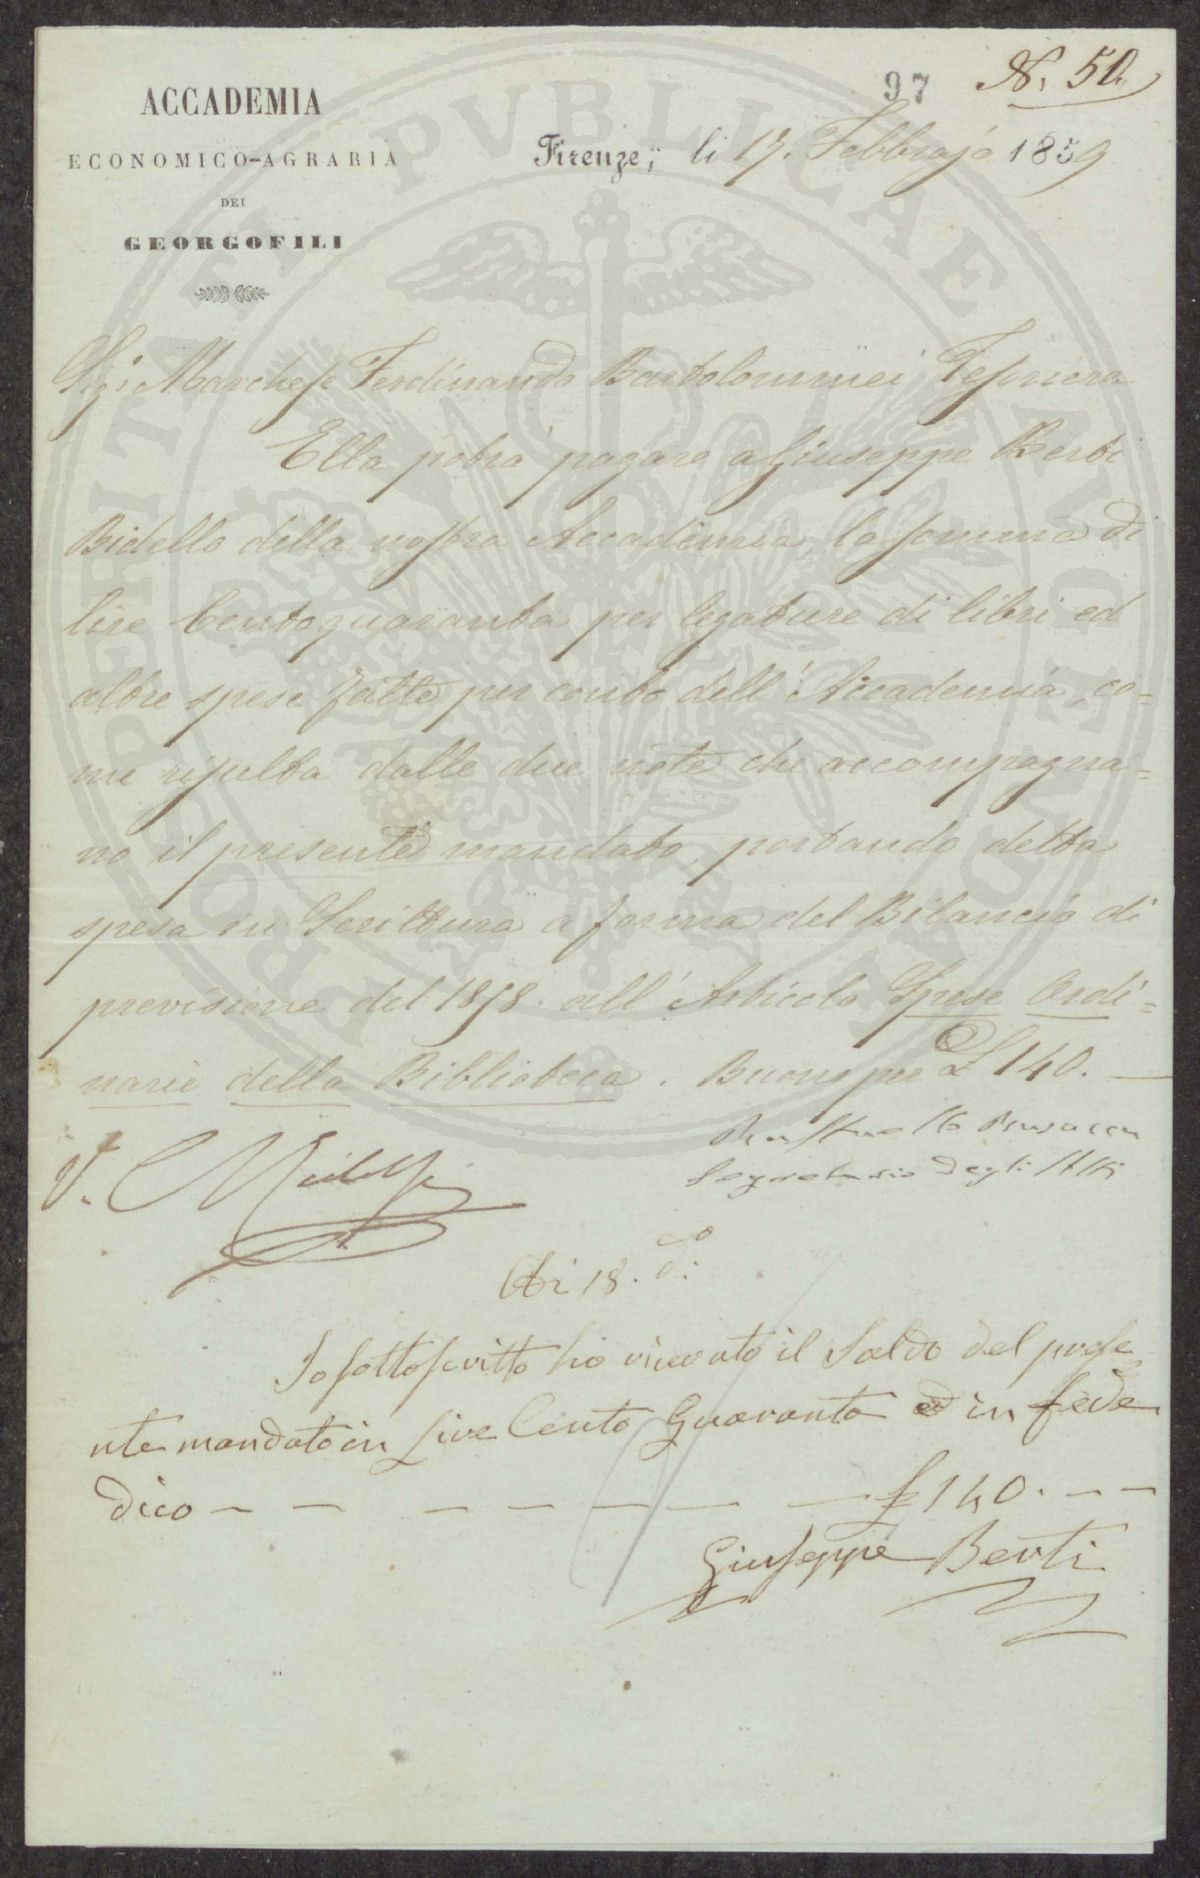 97 N. 50.
ACCADEMIA
ECONOMICO-AGRARIA
DEI
GEORGOFILI
Firenze, li 17. Febbrajo 1859
Sig. Marchese Ferdinando Bartolommei Tesoriere
Ella potrà pagare a Giuseppe Berti
Bidello della nostra Accademia, la somma di
lire Centoquaranta per legature di libri ed
altre spese fatte per conto dell'Accademia, co=
me risulta dalle due note che accompagna=
no il presente mandato, portando detta
spesa in Scrittura a forma del Bilancio di
previsione del 1858. all'Articolo Spese Ordi=
narie della Biblioteca. Buono per £ 140.—
V.
Segretario degli Atti
Di 18. do.
Io sottoscritto ho ricevuto il Saldo del prese
nte mandato in Lire Cento Quaranta ed in fede
dico — — — — — — — £ 140. — —
Giuseppe Berti
PVBLICAE
PROSPERITATI